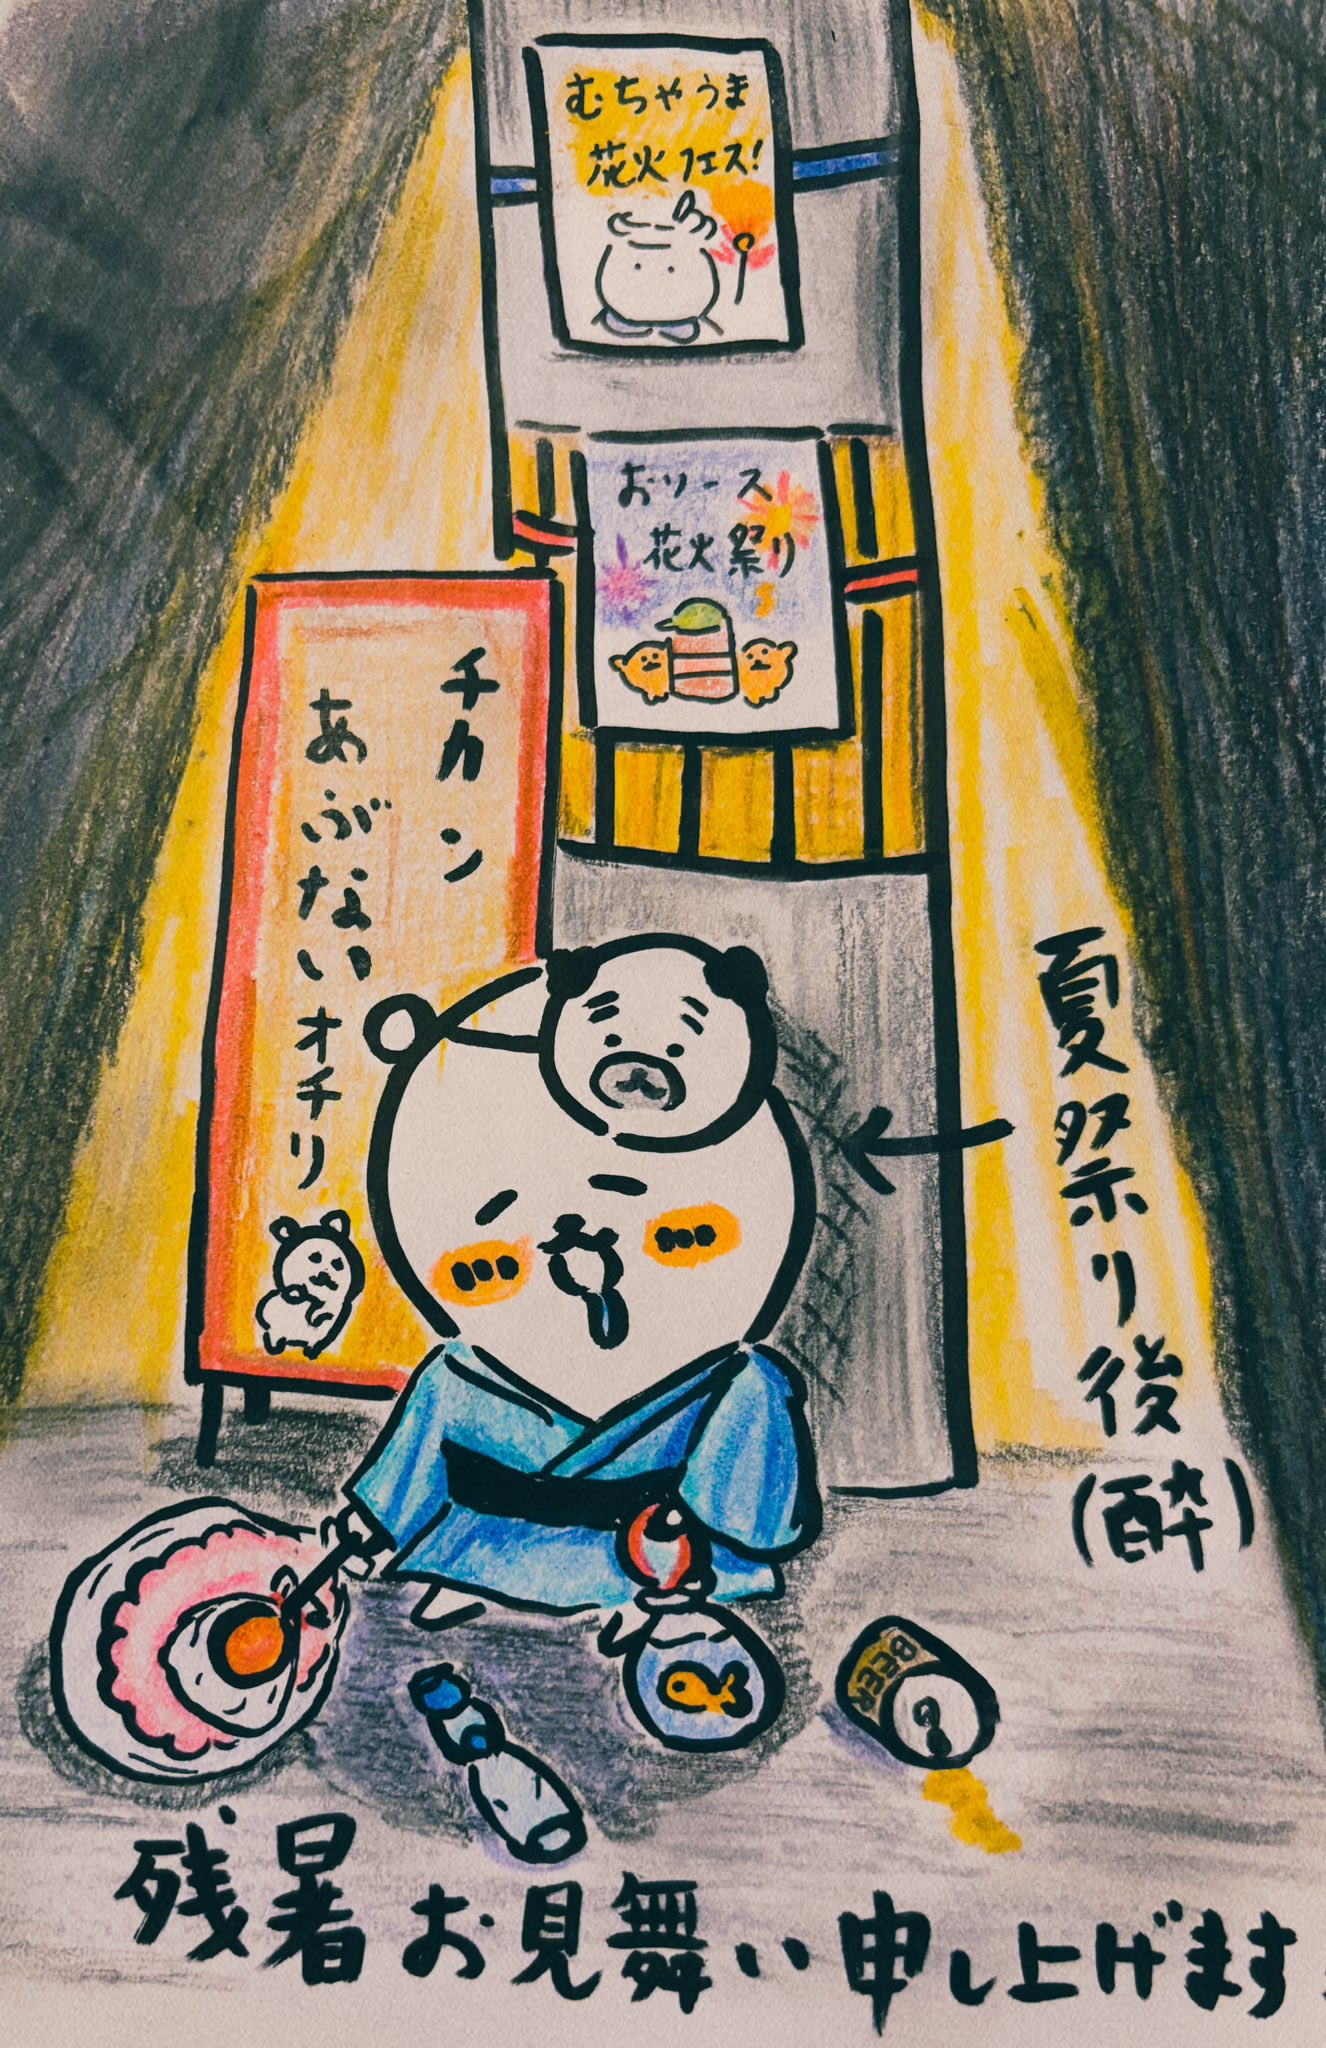 むちゃうま
花火フェス!
おソース
花火祭り
チカン
あぶないオチリ
夏祭り後
(酔)
BEER
残暑お見舞い申し上げます